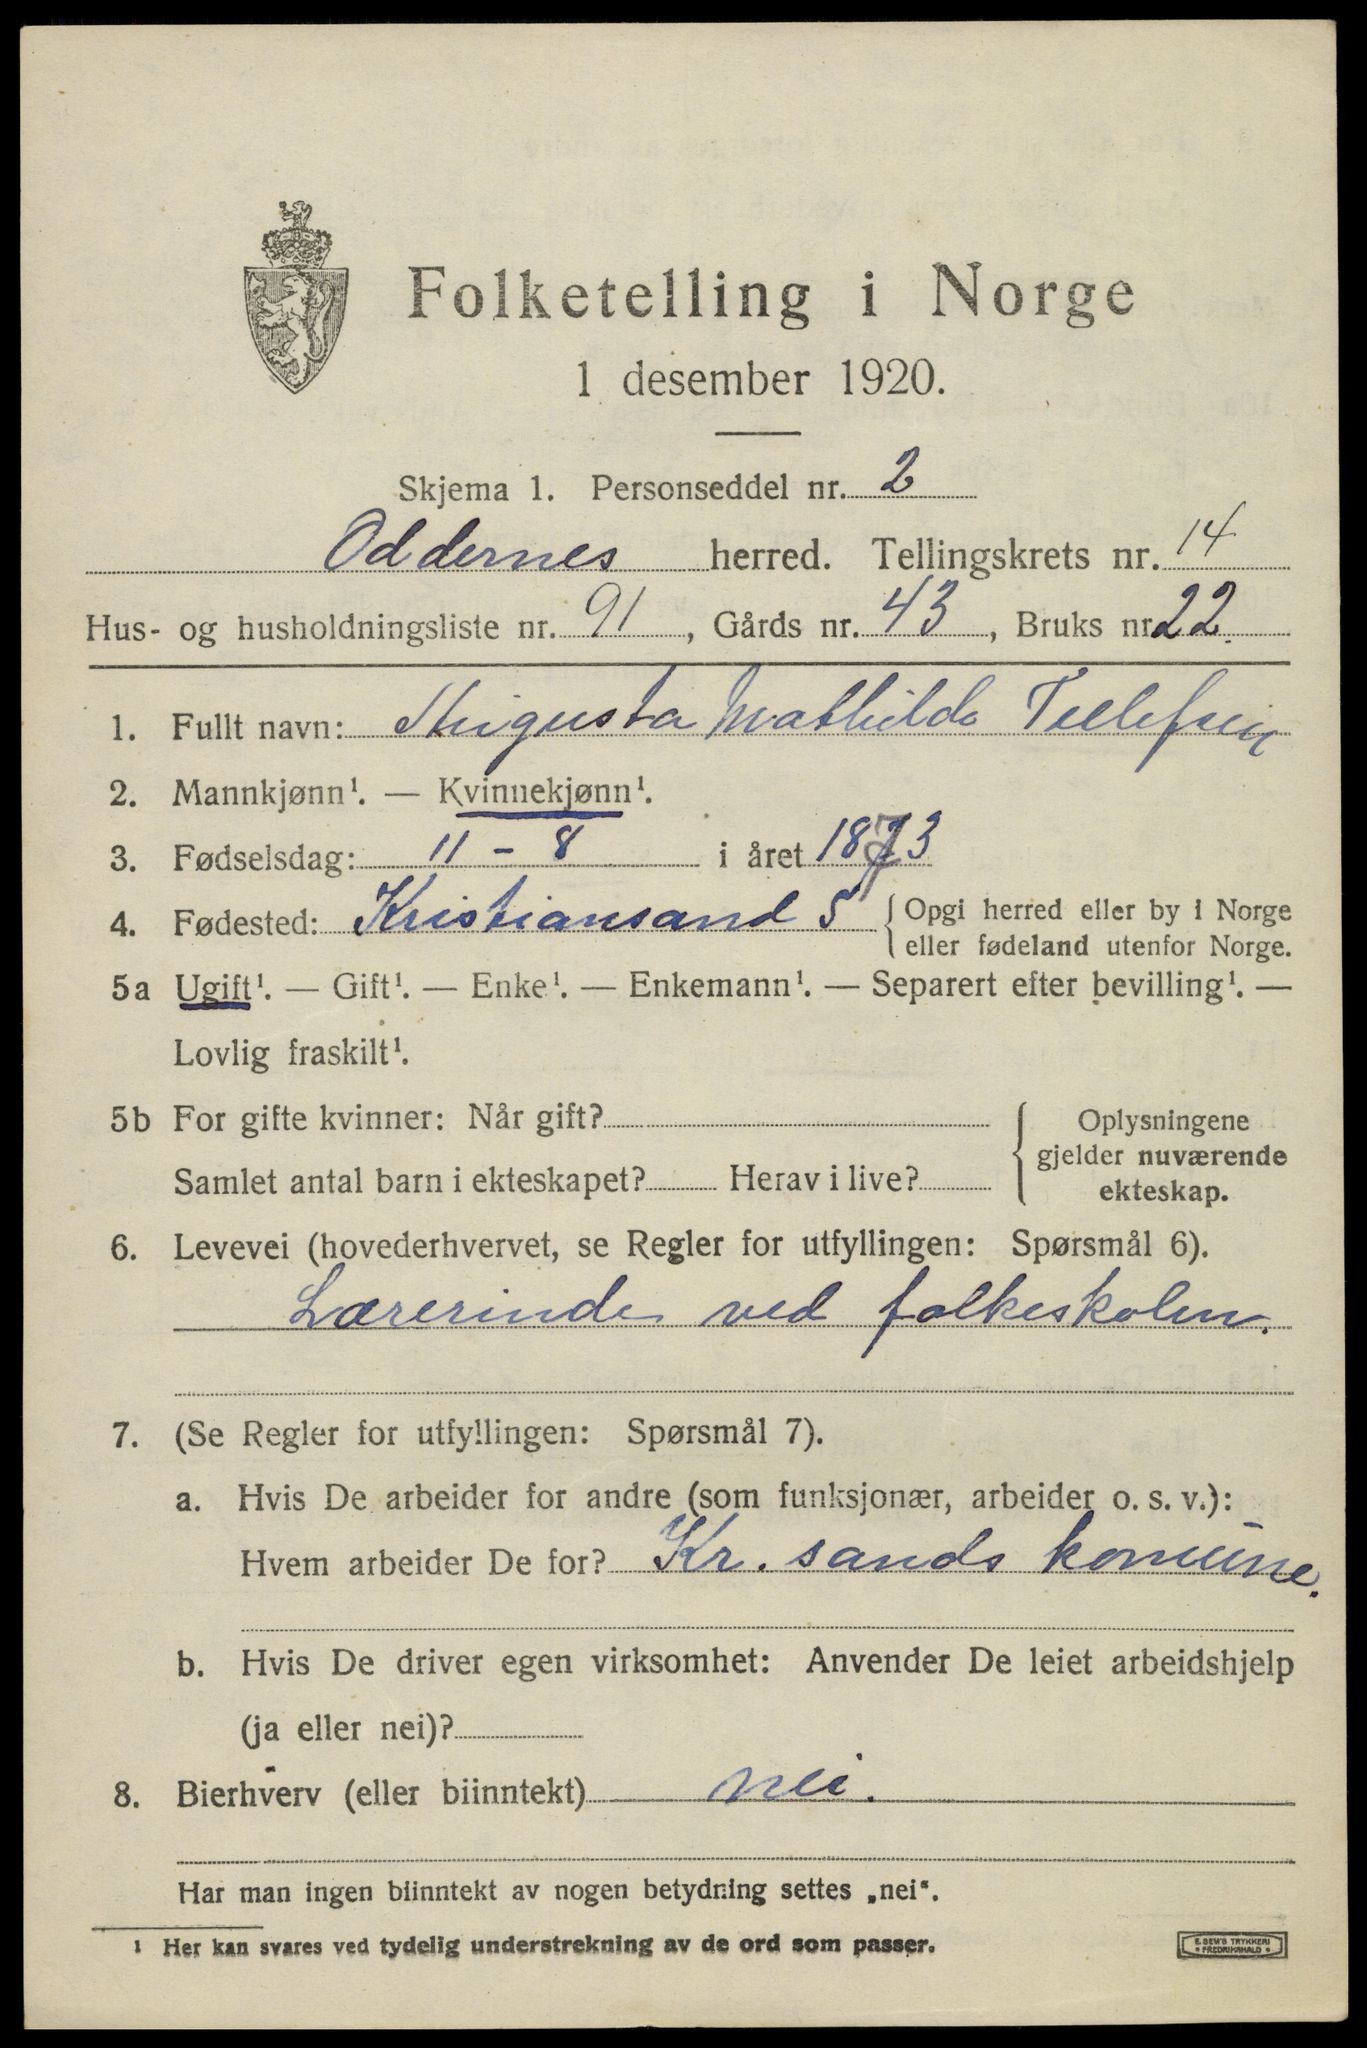 Folketelling i Norge
1 desember 1920.
Skjema 1. Personseddel nr. 2
Oddernes herred. Tellingskrets nr. 14
Hus- og husholdningsliste nr. 91, Gårds nr. 43, Bruks nr. 22.
1. Fullt navn: Augusta Mathilde Tellefsen
2. Mannkjønn¹. — Kvinnekjønn¹.
3. Fødselsdag: 11 - 8 i året 1873
4. Fødested: Kristiansand S { Opgi herred eller by i Norge
eller fødeland utenfor Norge.
5a Ugift¹. — Gift¹. — Enke¹. — Enkemann¹. — Separert efter bevilling¹. —
Lovlig fraskilt¹.
5b For gifte kvinner: Når gift?
Samlet antal barn i ekteskapet? Herav i live?
Oplysningene
gjelder nuværende
ekteskap.
6. Levevei (hovederhvervet, se Regler for utfyllingen: Spørsmål 6).
Lærerinde ved folkeskolen.
7. (Se Regler for utfyllingen: Spørsmål 7).
a. Hvis De arbeider for andre (som funksjonær, arbeider o. s. v.):
Hvem arbeider De for? Kr. sands komūne.
b. Hvis De driver egen virksomhet: Anvender De leiet arbeidshjelp
(ja eller nei)?
8. Bierhverv (eller biinntekt) nei.
Har man ingen biinntekt av nogen betydning settes „nei“.
¹ Her kan svares ved tydelig understrekning av de ord som passer.
E. SEM'S TRYKKERI
FREDRIKSHALD